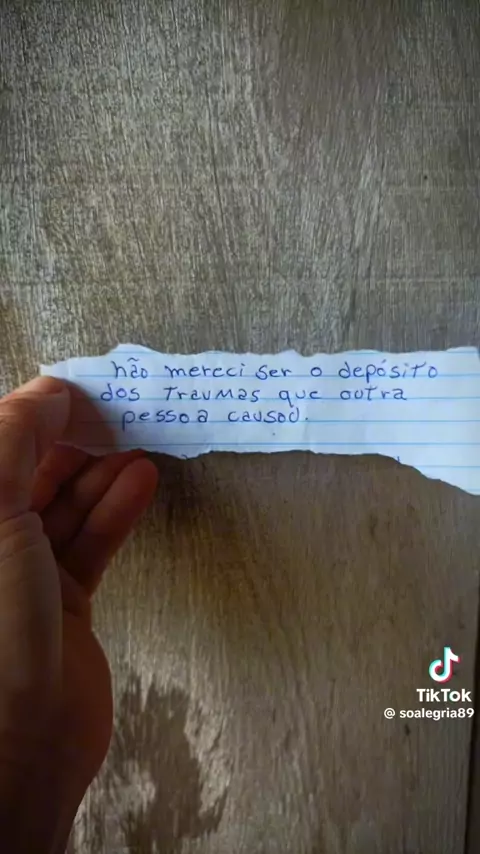 não mereci ser o depósito
dos traumas que outra
pessoa causou.
TikTok
@ soalegria89